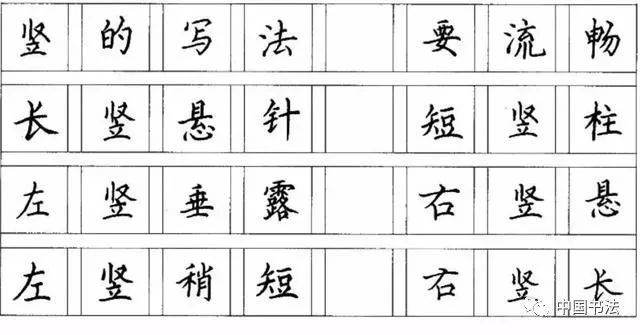 竖的写法 要流畅
长竖悬针 短竖柱
左竖垂露 右竖悬
左竖稍短 右竖长
中国书法